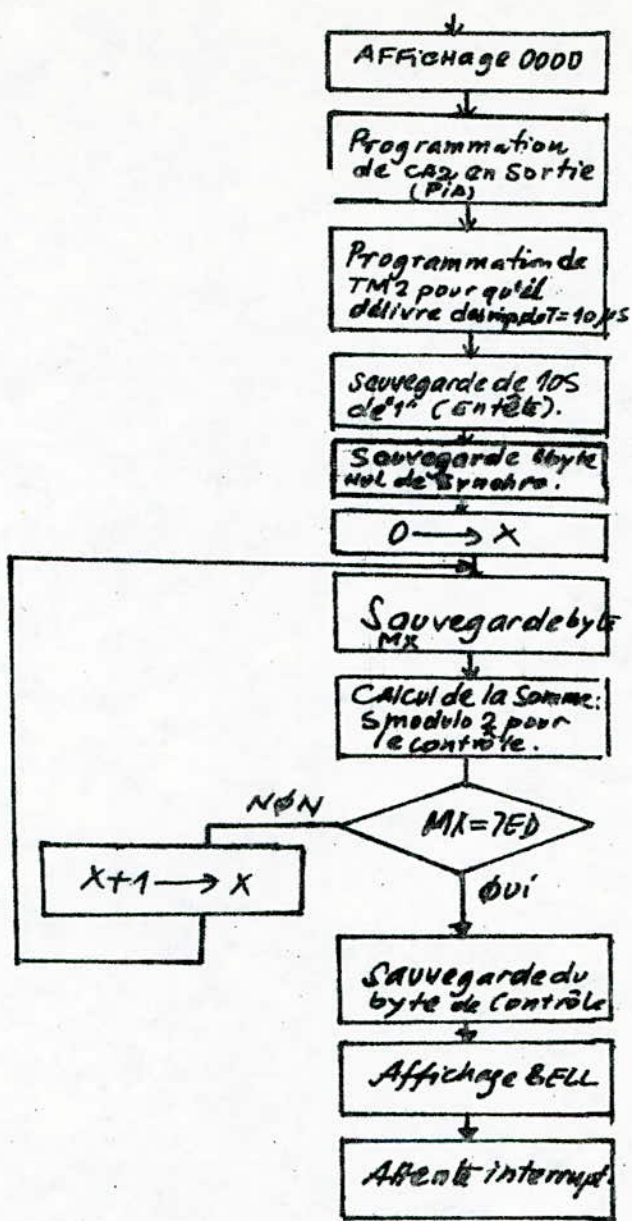 AFFicHage 0000
Programmation
de CA2 en Sortie
(PiA)
Programmation de
TM2 pour qu'il
délivre des imp de T=10µs
Sauvegarde de 10S
de "1" (Entête).
Sauvegarde byte
nul de Synchro.
0 → X
Sauvegarde byte
MX
CAlcul de la Somme:
S modulo 2 pour
le contrôle.
NØN
MX=7ED
X+1 → X
ØUi
Sauvegarde du
byte de Contrôle
Affichage BELL
Attente interrupt.